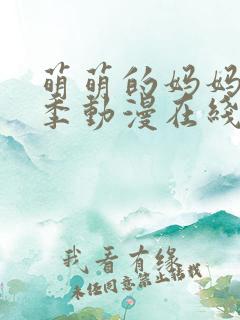 萌萌的妈妈
季動漫在綫
我看有緣
未经同意禁止转载